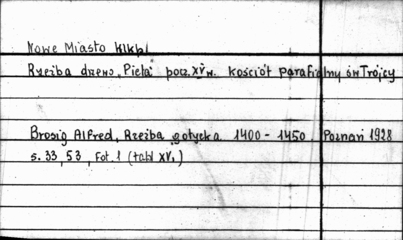 Nowe Miasto Wlkp.
Rzeźba drzew. „Pieta" pocz. XV w. kościół parafialny św Trójcy
Brosig Alfred, Rzeźba gotycka 1400 - 1450 Poznań 1928
s. 33, 53, Fot. 1 (tabl XV.)